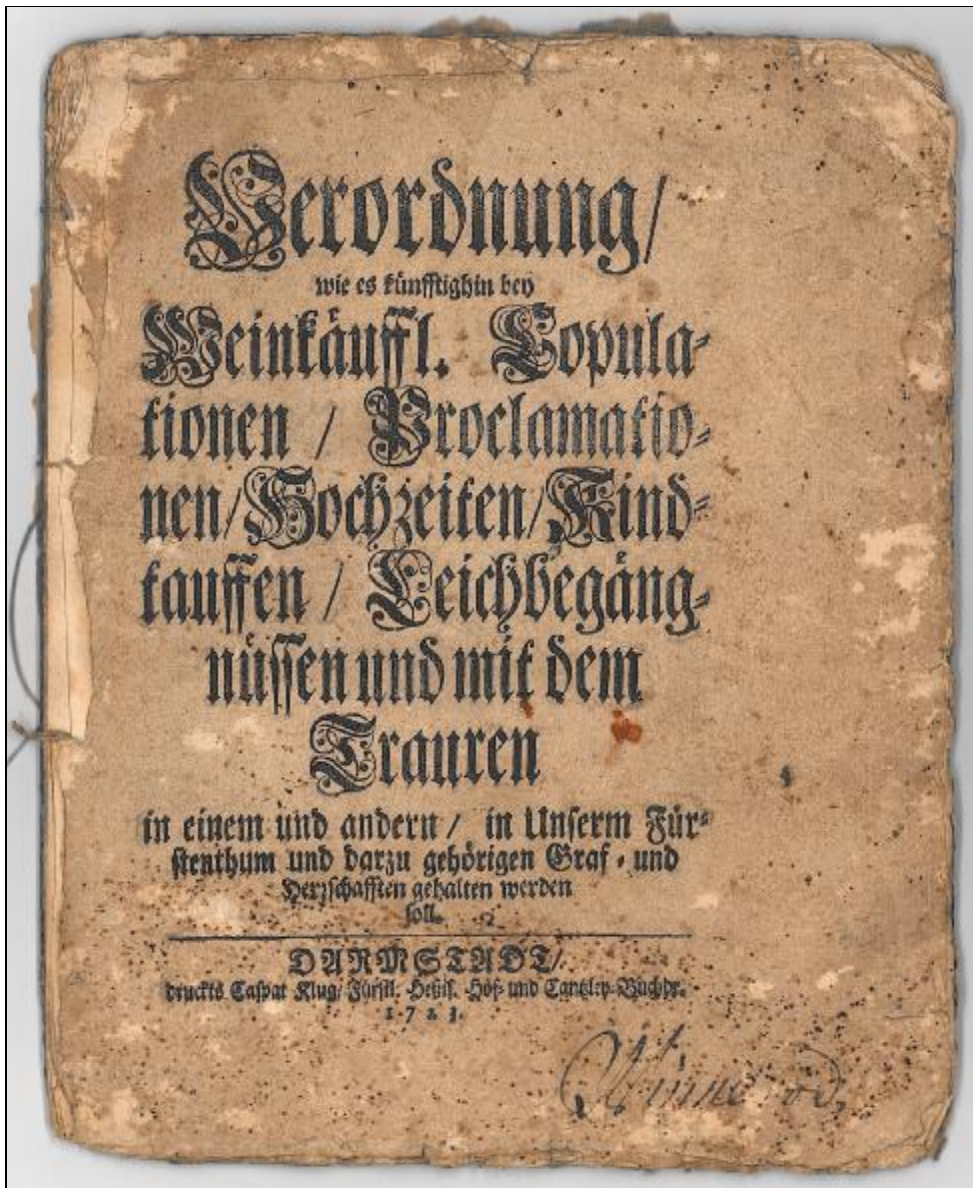 Verordnung/
wie es künfftighin bey
Weinkäuffl. Copula⸗
tionen / Proclamatio⸗
nen/Hochzeiten/Kind⸗
tauffen / Leichbegäng⸗
nüssen und mit dem
Trauren
in einem und andern / in Unserm Für⸗
stenthum und darzu gehörigen Graf⸗ und
Herrschafften gehalten werden
soll.
DARMSTADT/
druckts Caspar Klug/ Fürstl. Heßis. Hof⸗ und Cantzley⸗Buchdr.
1723.